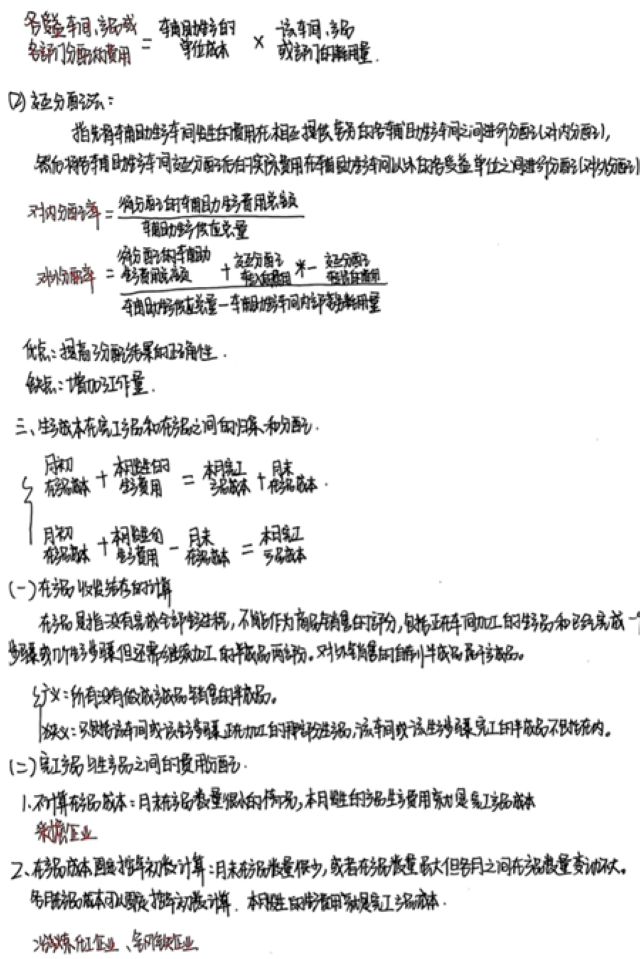 各受益车间、产品或各部门分配的费用 = 辅助生产的单位成本 × 该车间、产品或部门的耗用量
(2) 交互分配法：
指先将辅助生产车间发生的费用在相互提供劳务的各辅助生产车间之间进行分配(对内分配)，
然后将各辅助生产车间交互分配后的实际费用在辅助生产车间以外的各受益单位之间进行分配(对外分配)
对内分配率 = 待分配的辅助生产费用总额 / 辅助生产供应总量
对外分配率 = 待分配的辅助生产费用总额 + 交互分配转入的费用 - 交互分配转出的费用 / 辅助生产供应总量 - 辅助生产车间内部耗用量
优点：提高了分配结果的正确性.
缺点：增加了工作量.
三、生产成本在完工产品和在产品之间的归集和分配.
月初在产品成本 + 本月发生的生产费用 = 本月完工产品成本 + 月末在产品成本.
月初在产品成本 + 本月发生的生产费用 - 月末在产品成本 = 本月完工产品成本
(一) 在产品收发结存的计算
在产品是指没有完成全部生产过程，不能作为商品销售的部分，包括正在车间加工的在产品和已经完成一个
步骤或几个生产步骤但还需继续加工的半成品两部分。对外销售的自制半成品属于产成品。
广义：所有没有做成产成品销售的半成品。
狭义：只包括该车间或该生产步骤正在加工的那部分在产品，该车间或该生产步骤完工的半成品不包括在内。
(二) 完工产品与在产品之间的费用分配.
1. 不计算在产品成本：月末在产品数量很小的情况，本月发生的产品生产费用就是完工产品成本
采掘企业
2、在产品成本固定按年初数计算：月末在产品数量很少，或者在产品数量虽大但各月之间在产品数量变动不大。
各月在产品成本可以固定按年初数计算. 本月发生的生产费用就是完工产品成本.
冶炼化工企业、钢铁企业